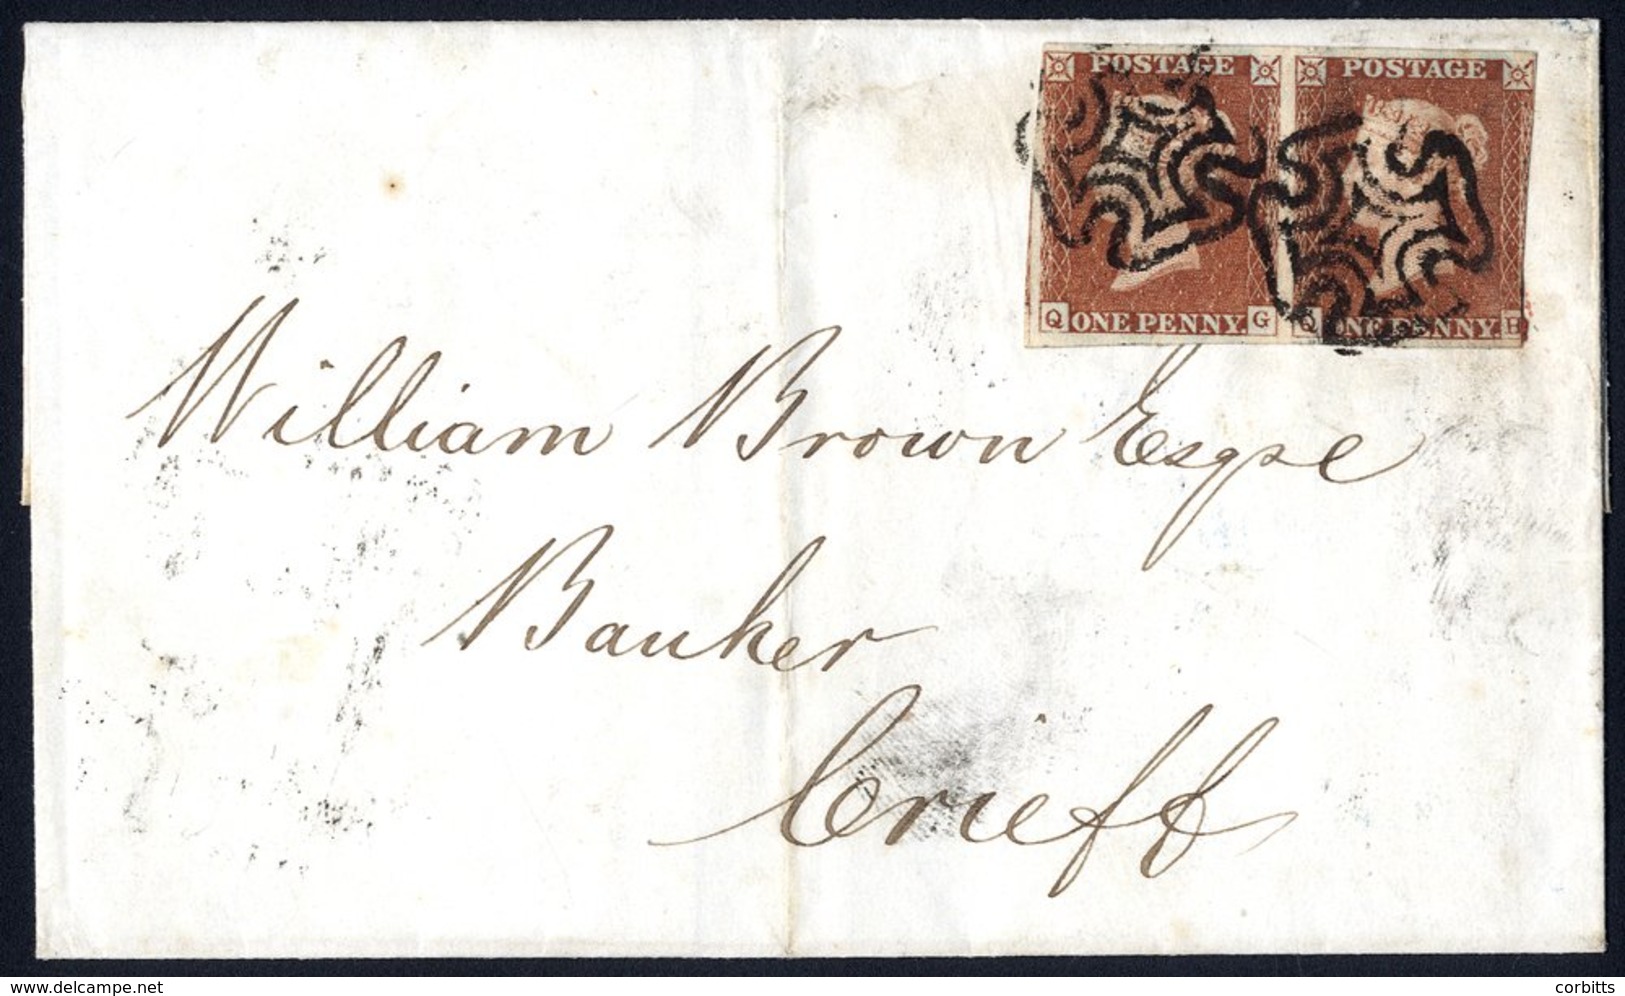 POSTAGE POSTAGE
Q ONE PENNY. G Q ONE PENNY. H
William Brown Esqre
Banker
Crieff
delcampe.net
corbitts